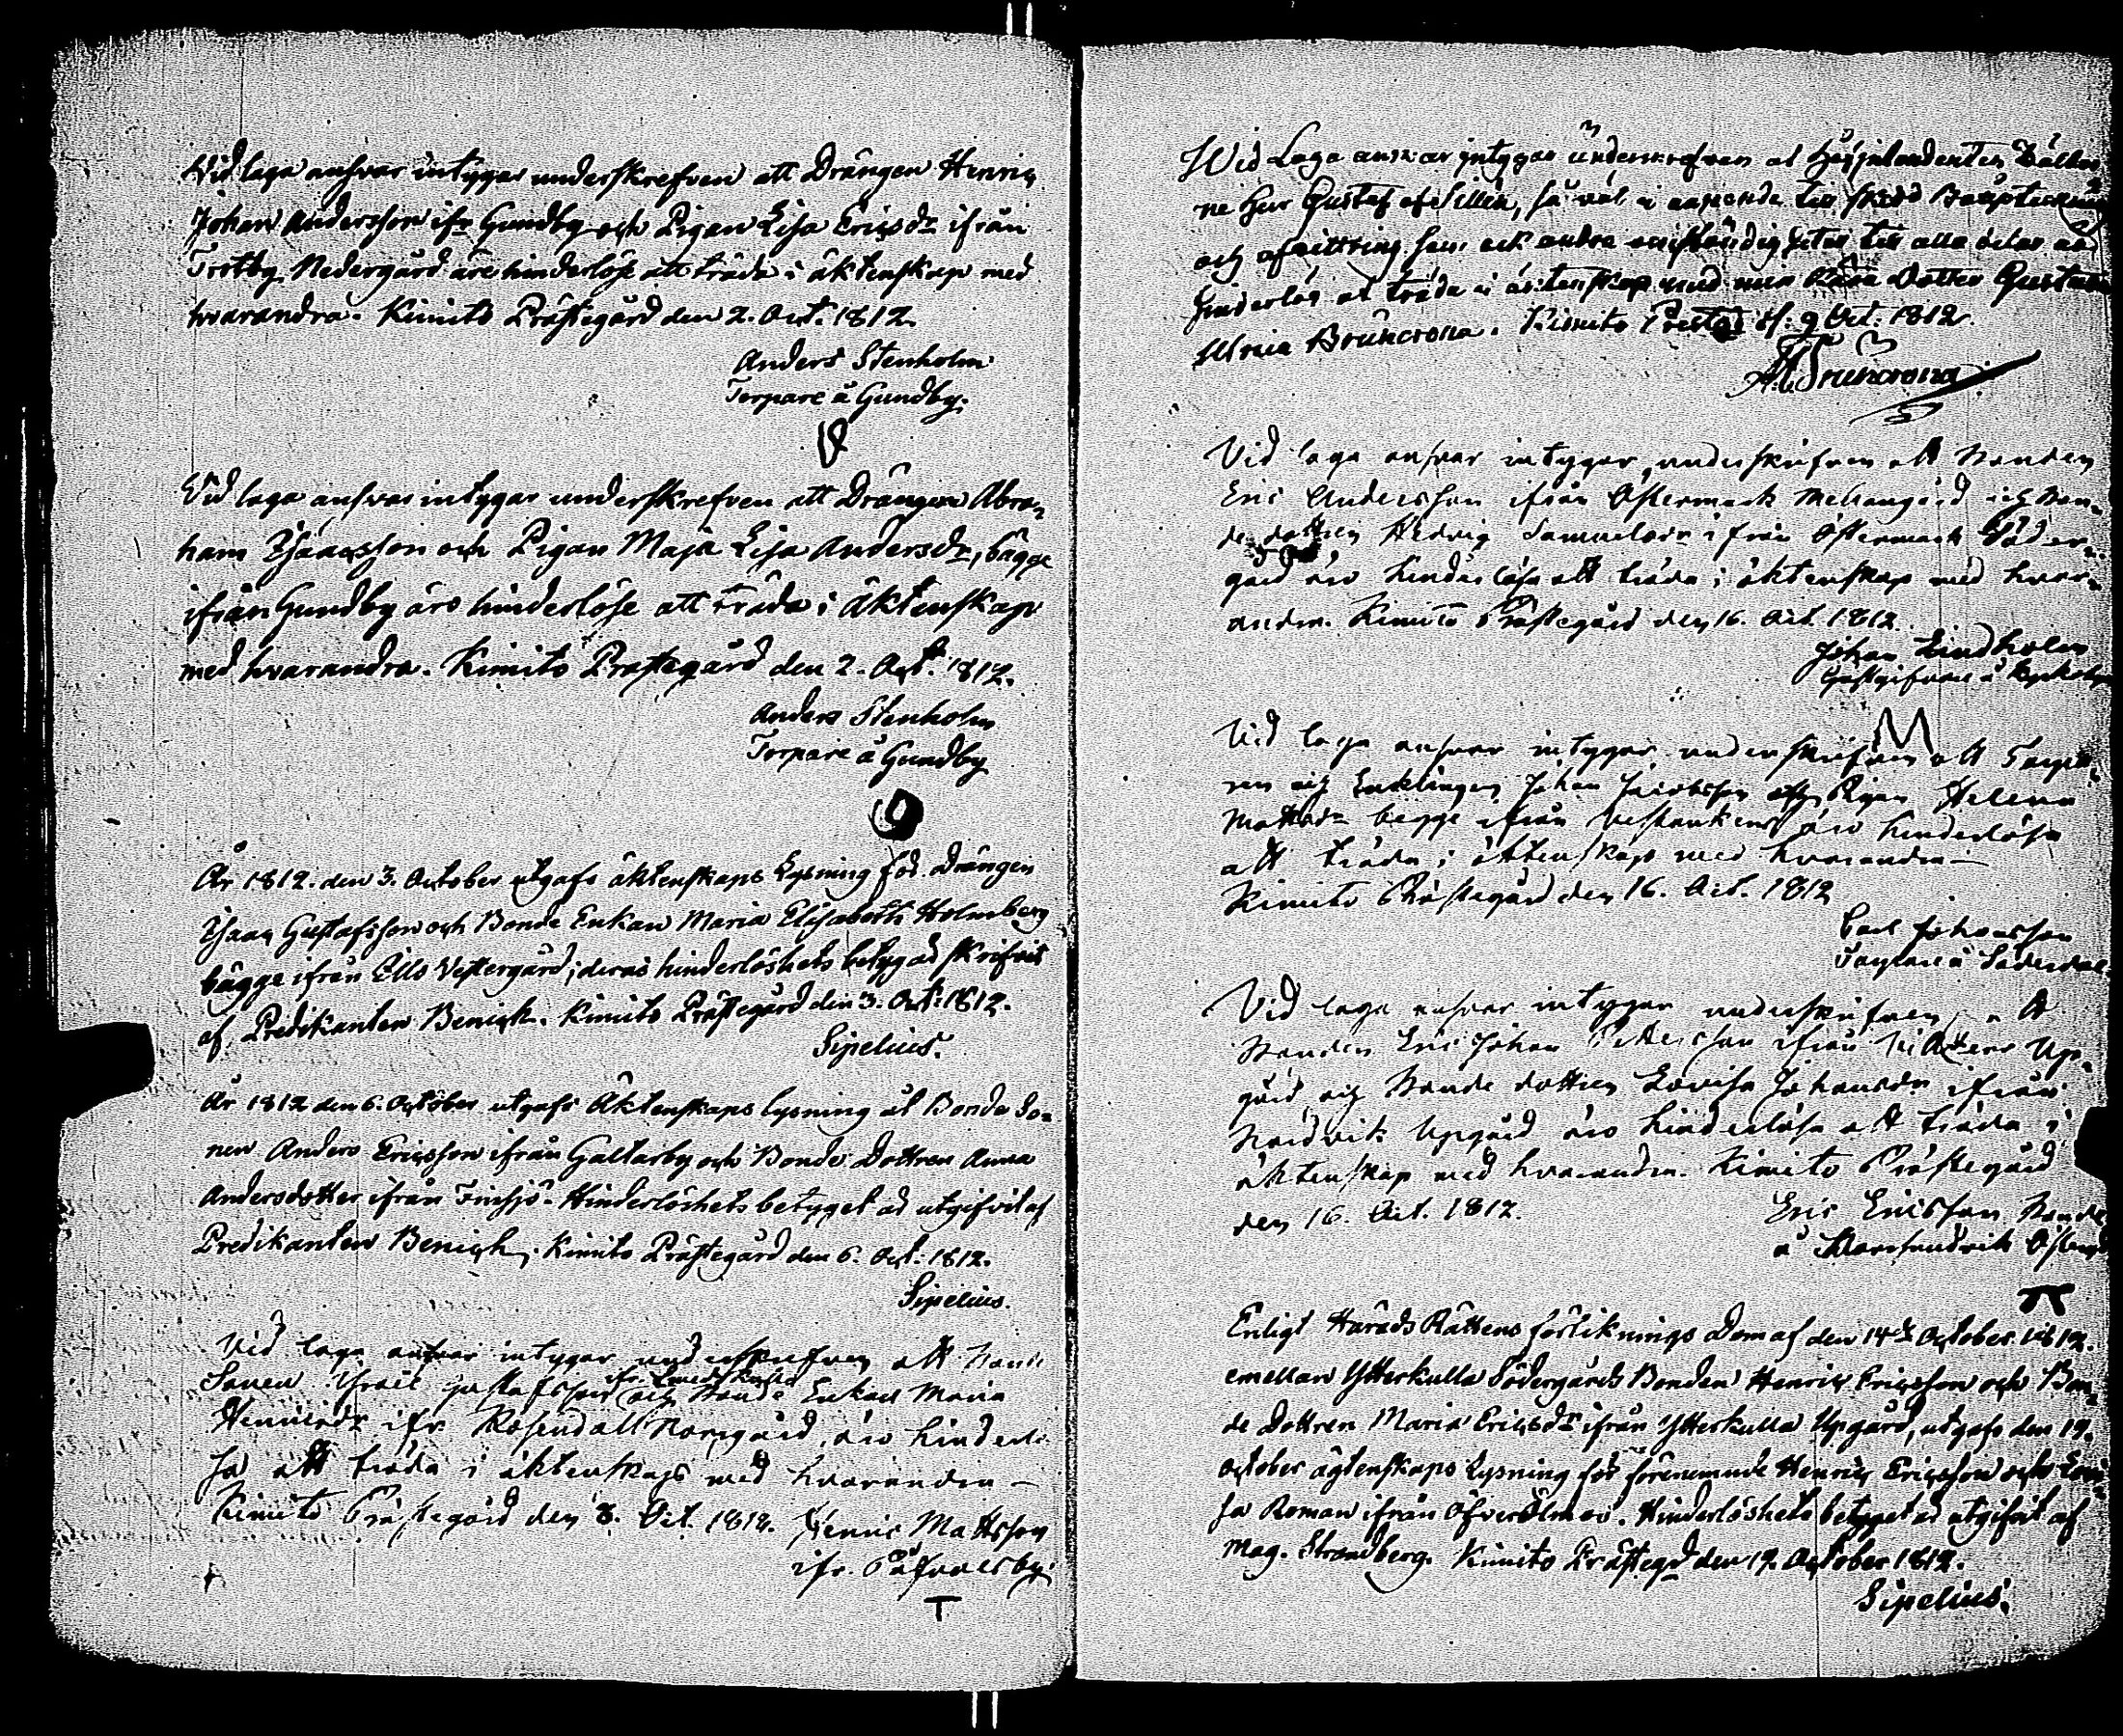 Vid laga ansvar intygar underskrefven att Drängen Henric
Johan Andersson ifr Gundby och Pigan Lisa Ericsdr ifrån
Trotby Nedergård äre hinderlöse att träda i äktenskap med
hvarandra. Kimito Prästegård den 2. Oct. 1812.
Anders Stenholm
Torpare å Gundby.
Vid laga ansvar intygar underskrefven att Drängen Abra-
ham Isaacsson och Pigan Maja Lisa Andersdr, bägge
ifrån Gundby äro hinderlöse att träda i Äktenskap
med hvarandra. Kimito Prästegård den 2. Oct. 1812.
Anders Stenholm
Torpare å Gundby
År 1812. den 3. October utgafs äktenskaps Lysning för Drängen
Isaac Gustafsson och Bonde Enkan Maria Elisabeth Holmberg
bägge ifrån Ells Vestergård; deras hinderlöshets betyg är skrifvit
af Predikanten Benick. Kimito Prästegård den 3. Oct. 1812.
Sipelius.
År 1812 den 6. October utgafs Äktenskaps lysning åt Bonde So-
nen Anders Ericsson ifrån Galtarby och Bonde Dottren Anna
Andersdotter ifrån Finsjö. Hinderlöshets betyget är utgifvit af
Predikanten Benick. Kimito Prästegård den 6. Oct. 1812.
Sipelius.
Vid laga ansvar intygar underskrifven att Bonde
ifr.
Sonen Israel Gustafsson och Bonde Enkan Maria
Henricsdr ifr. Rosendall Norrgård, äro hinderlö-
sa att träda i äktenskap med hvarandra —
Kimito Prästegård den 8. Oct. 1812. Henric Mattsson
ifr. Påfvalsby.
T
Wid Laga answar intygar underskrefven at
ne Herr Gustaf af Sillén, så väl i
och
hinderlös at träda i äktenskap med min Kära Dotter Gustava
Ulrica Bruncrona. Kimito Prestgd d. 9 Oct. 1812.
Bruncrona
Vid laga ansvar intygar underskrifven att Bonden
Eric Andersson ifrån Östermark Mellangård och Bon-
de dottren Hedvig Samuelsdr ifrån Östermark Söder-
gård äro hinderlösa att träda i äktenskap med hvar-
andra. Kimito Prästegård den 16. Oct. 1812.
Johan Lindholm
Gästgifvare å
Vid laga ansvar intygar underskrifven att Torpa-
ren och Enklingen Johan Jacobsson och Pigan Helena
Mattsdr begge ifrån Vestankerr äro hinderlösa
att träda i äktenskap med hvarandra —
Kimito Prästegård den 16. Oct. 1812
Carl Johansson
Torpare å
Vid laga ansvar intygar underskrifven att
Bonden Eric Johan Pettersson ifrån Up-
gård och Bonde dottren Lovisa Johansdr ifrån
Nordvik Upgård äro hinderlösa att träda i
äktenskap med hvarandra. Kimito Prästegård
den 16. Oct. 1812. Eric Ericsson Bonde
å
Enligt Härads Rättens förliknings Dom af den 14de October 1812.
emellan Ytterkulla Södergårds Bonden Henric Ericsson och Bon-
de Dottren Maria Ericsdr ifrån Ytterkulla Upgård, utgafs den 17.
October ägtenskaps Lysning för förenemnde Henric Ericsson och Lovi-
sa Roman ifrån Öfverölmos. Hinderlöshets betyget är utgifvit af
Mag. Strandberg. Kimito Prästegd den 17 October 1812.
Sipelius.